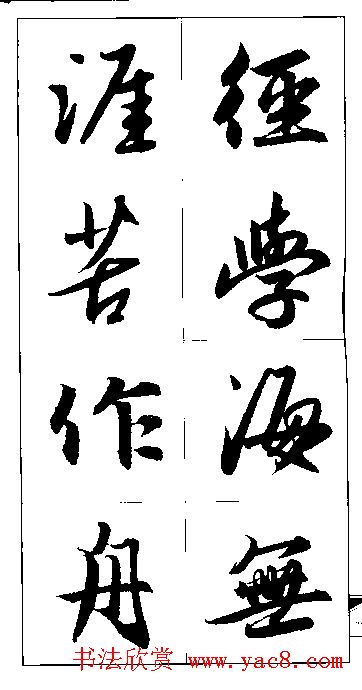 徑學海無
涯苦作舟
书法欣赏 www.yac8.com